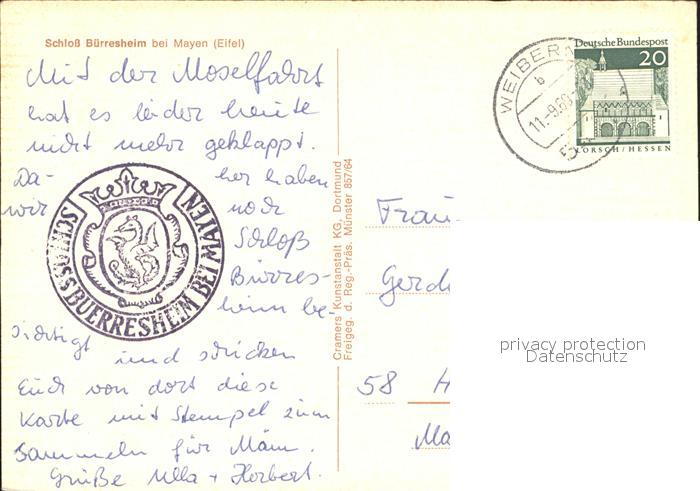 Schloß Bürresheim bei Mayen (Eifel)
Mit der Moselfahrt
hat es leider heute
nicht mehr geklappt.
Da- her haben
wir noch
Schloß
Bürres-
heim be-
sichtigt und schicken
Euch von dort diese
Karte mit Stempel zum
Sammeln für Mäm.
Grüße Ulla + Herbert.
SCHLOSS BUERRESHEIM BEI MAYEN
Cramers Kunstanstalt KG, Dortmund
Freigeg. d. Reg.-Präs. Münster 857/64
WEIBERN
b
11.-9.69
Deutsche Bundespost
20
LORSCH/HESSEN
Frau
Gerd
58 H
Ma
privacy protection
Datenschutz